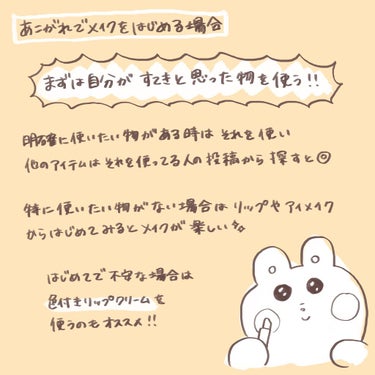 あこがれでメイクをはじめる場合
まずは自分がすてきと思った物を使う!!
明確に使いたい物がある時はそれを使い
他のアイテムはそれを使ってる人の投稿から探すと◎
特に使いたい物がない場合はリップやアイメイク
からはじめてみるとメイクが楽しい
はじめてで不安な場合は
色付きリップクリームを
使うのもオススメ!!